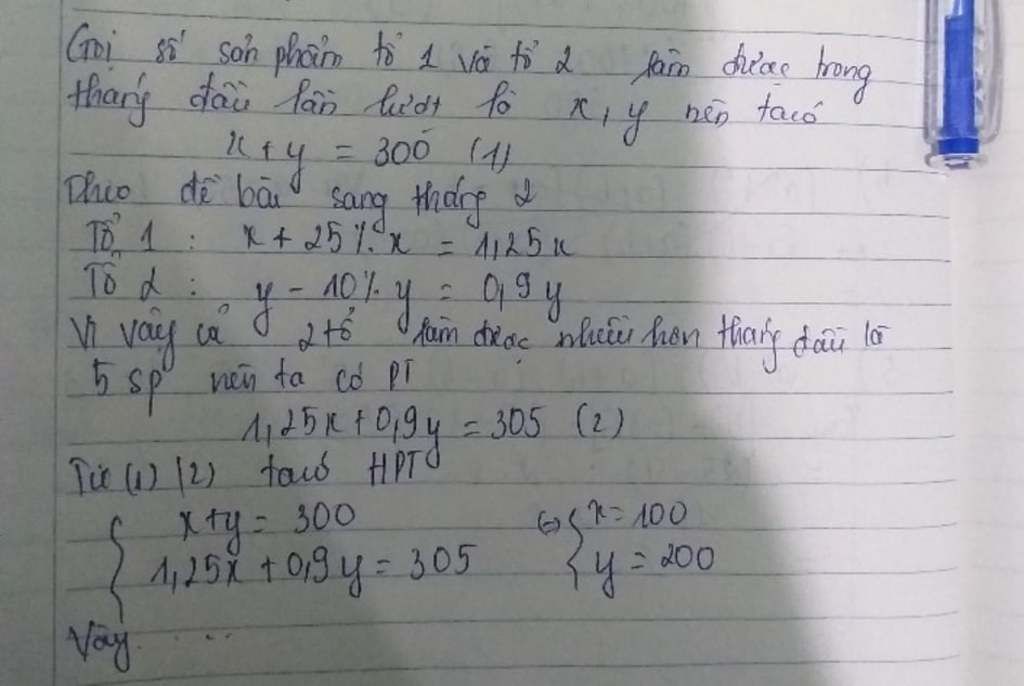 Gọi số sản phẩm tổ 1 và tổ 2 làm được trong
tháng đầu lần lượt là x, y nên ta có
x + y = 300 (1)
Theo đề bài sang tháng 2
Tổ 1 : x + 25% x = 1,25x
Tổ 2 : y - 10% y = 0,9y
Vì vậy cả 2 tổ làm được nhiều hơn tháng đầu là
5 sp nên ta có PT
1,25x + 0,9y = 305 (2)
Từ (1) (2) ta có HPT
{ x+y = 300 (=) { x = 100
1,25x + 0,9y = 305 y = 200
Vậy ....